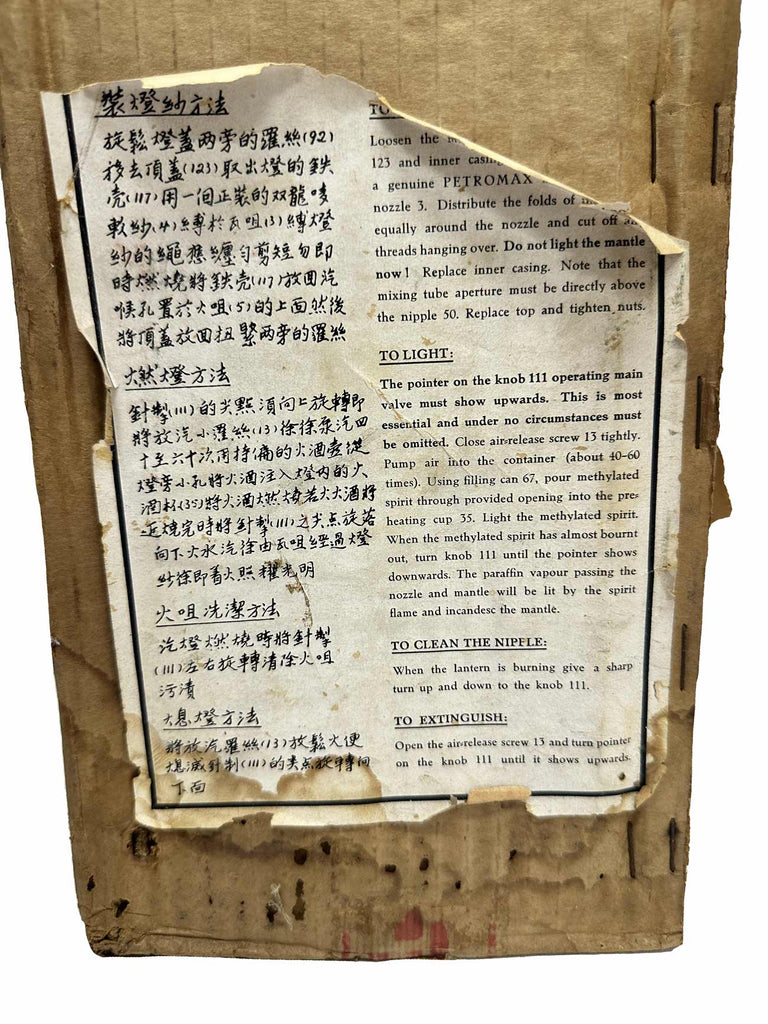 裝燈紗方法
旋鬆燈蓋两旁的羅絲(92)
移去頂蓋(123)取出燈的鉄
壳(117)用一個正裝的双龍唛
軟紗(4)縛於瓦咀(3)縛燈
紗的繩應纏匀剪短勿即
時燃燒將鉄壳(117)放囬汽
喉孔置於火咀(5)的上面然後
將頂蓋放囬扭緊两旁的羅絲
燃燈方法
針掣(111)的尖點須向上旋轉即
將放汽小羅絲(13)徐徐泵汽四
十至六十次用持備的火酒壺從
燈旁小孔將火酒注入燈內的火
酒杯(35)將火酒燃燒若火酒將
近燒完時將針掣(111)之尖点旋落
向下火水汽徐由瓦咀經過燈
紗徐即着火照耀光明
火咀洗潔方法
汽燈燃燒時將針掣
(111)左右旋轉清除火咀
污漬
熄燈方法
將放汽羅絲(13)放鬆火便
熄滅針制(111)的尖点旋轉向
下面
TO
Loosen the
123 and inner casing
a genuine PETROMAX
nozzle 3. Distribute the folds of
equally around the nozzle and cut off
threads hanging over. Do not light the mantle
now! Replace inner casing. Note that the
mixing tube aperture must be directly above
the nipple 50. Replace top and tighten nuts.
TO LIGHT:
The pointer on the knob 111 operating main
valve must show upwards. This is most
essential and under no circumstances must
be omitted. Close air-release screw 13 tightly.
Pump air into the container (about 40-60
times). Using filling can 67, pour methylated
spirit through provided opening into the pre-
heating cup 35. Light the methylated spirit.
When the methylated spirit has almost bournt
out, turn knob 111 until the pointer shows
downwards. The paraffin vapour passing the
nozzle and mantle will be lit by the spirit
flame and incandesc the mantle.
TO CLEAN THE NIPPLE:
When the lantern is burning give a sharp
turn up and down to the knob 111.
TO EXTINGUISH:
Open the air-release screw 13 and turn pointer
on the knob 111 until it shows upwards.